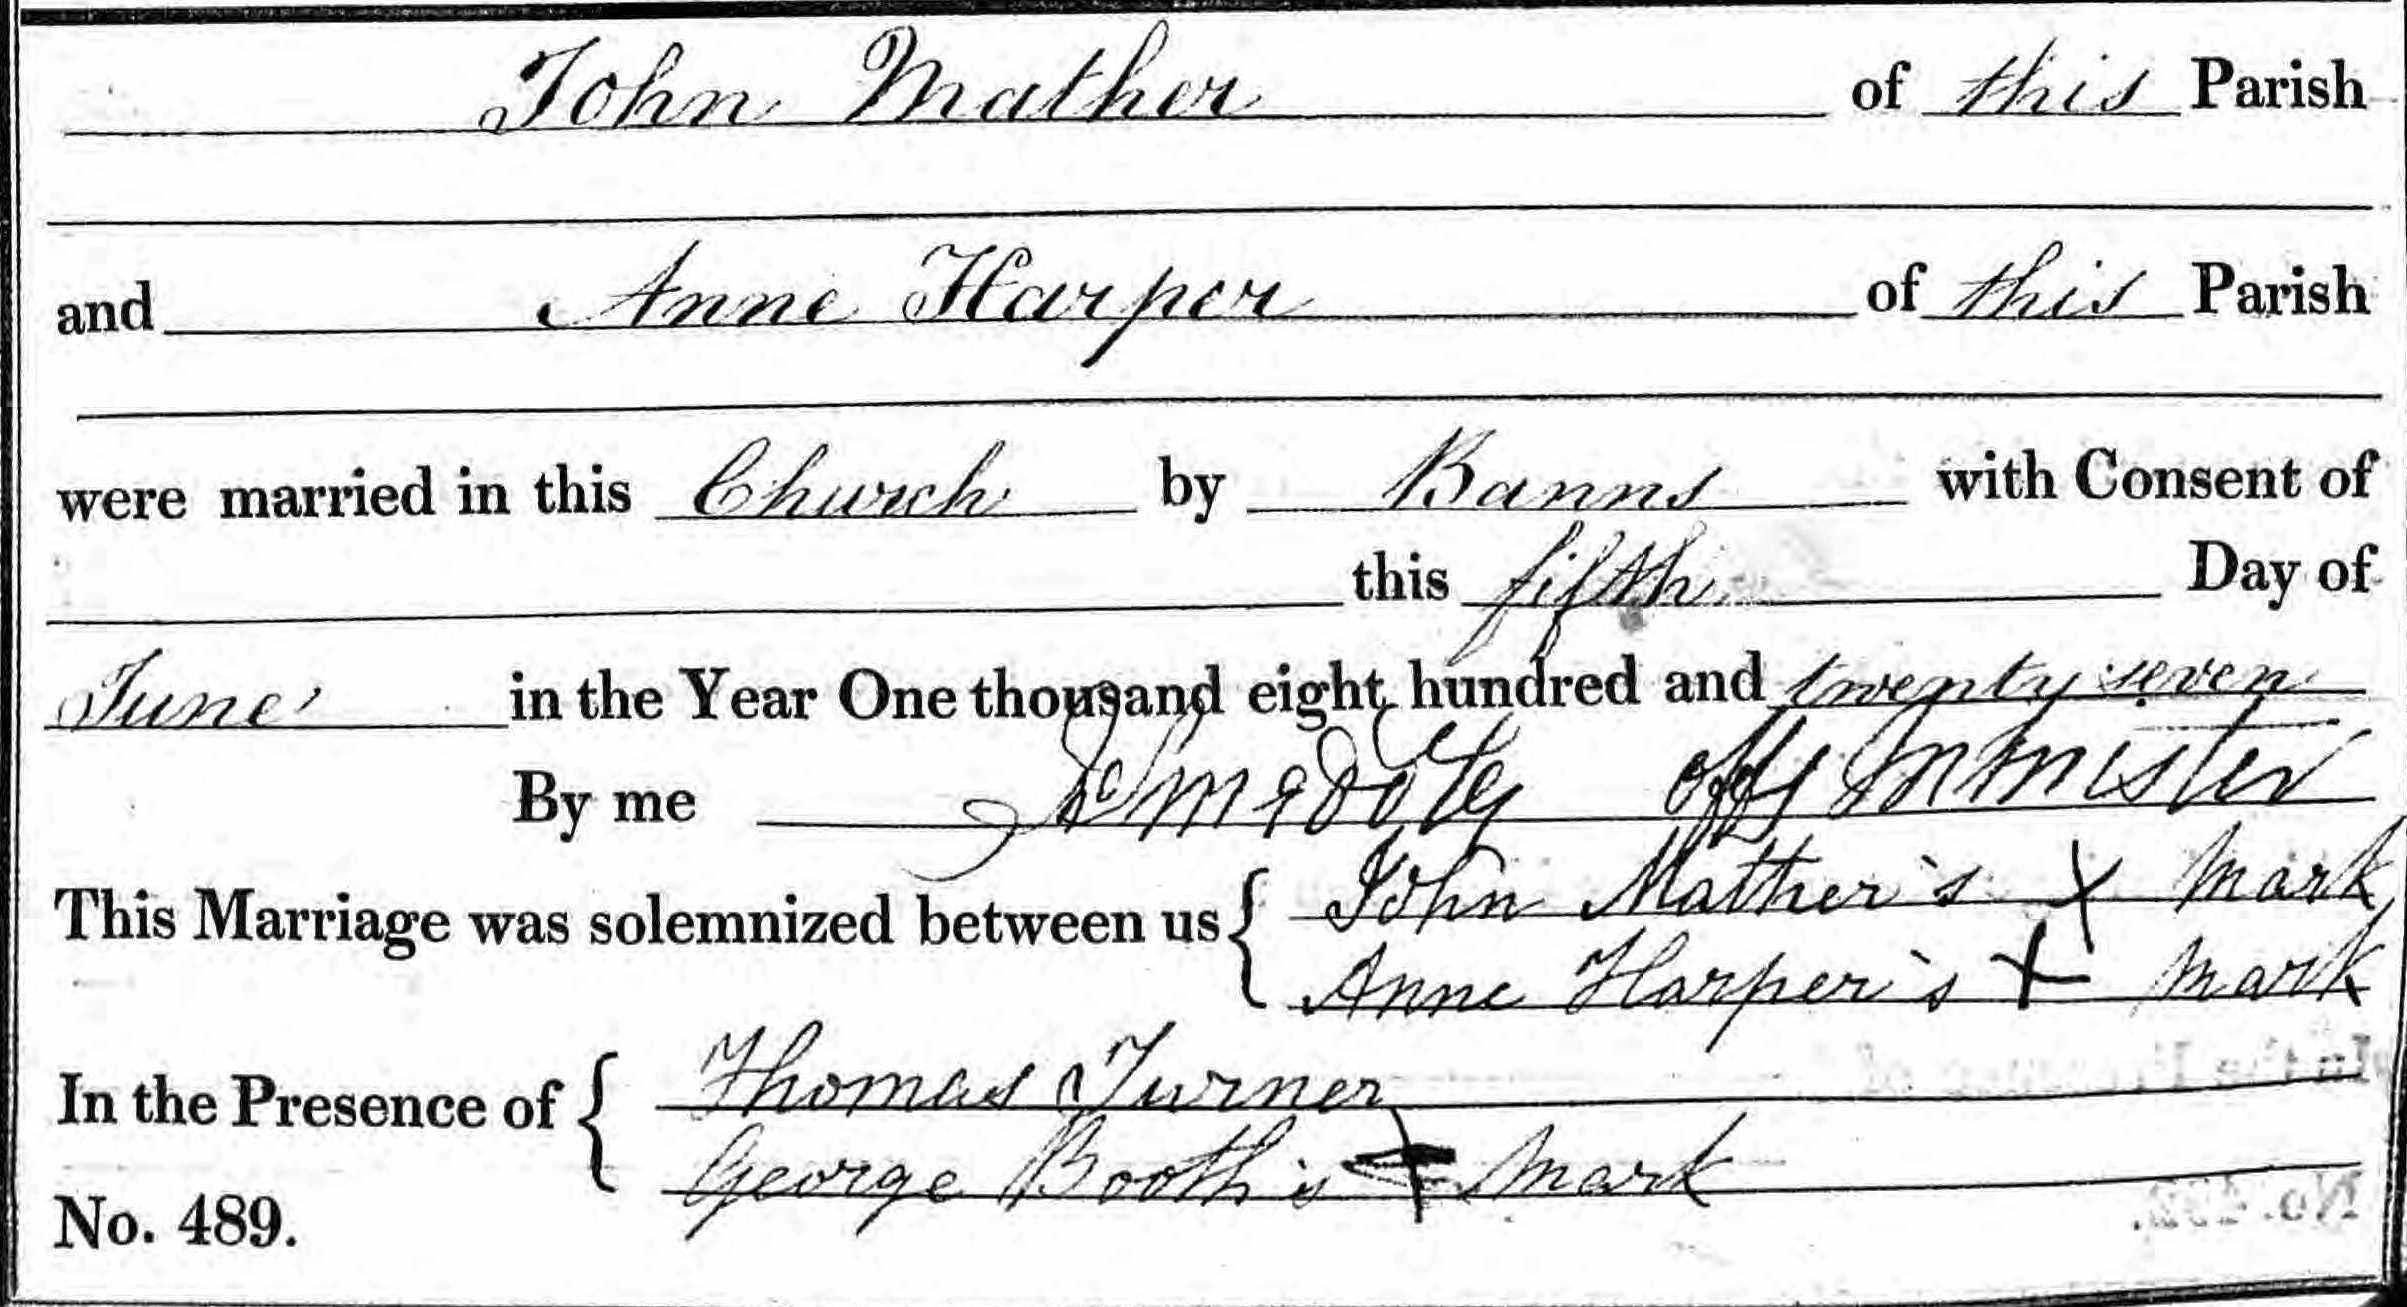 John Mather of this Parish
and Anne Harper of this Parish
were married in this Church by Banns with Consent of
this fifth Day of
June in the Year One thousand eight hundred and twenty seven
By me Smedley Offg Minister
This Marriage was solemnized between us { John Mather's X Mark
Anne Harper's X Mark
In the Presence of { Thomas Turner
George Booth's X Mark
No. 489.